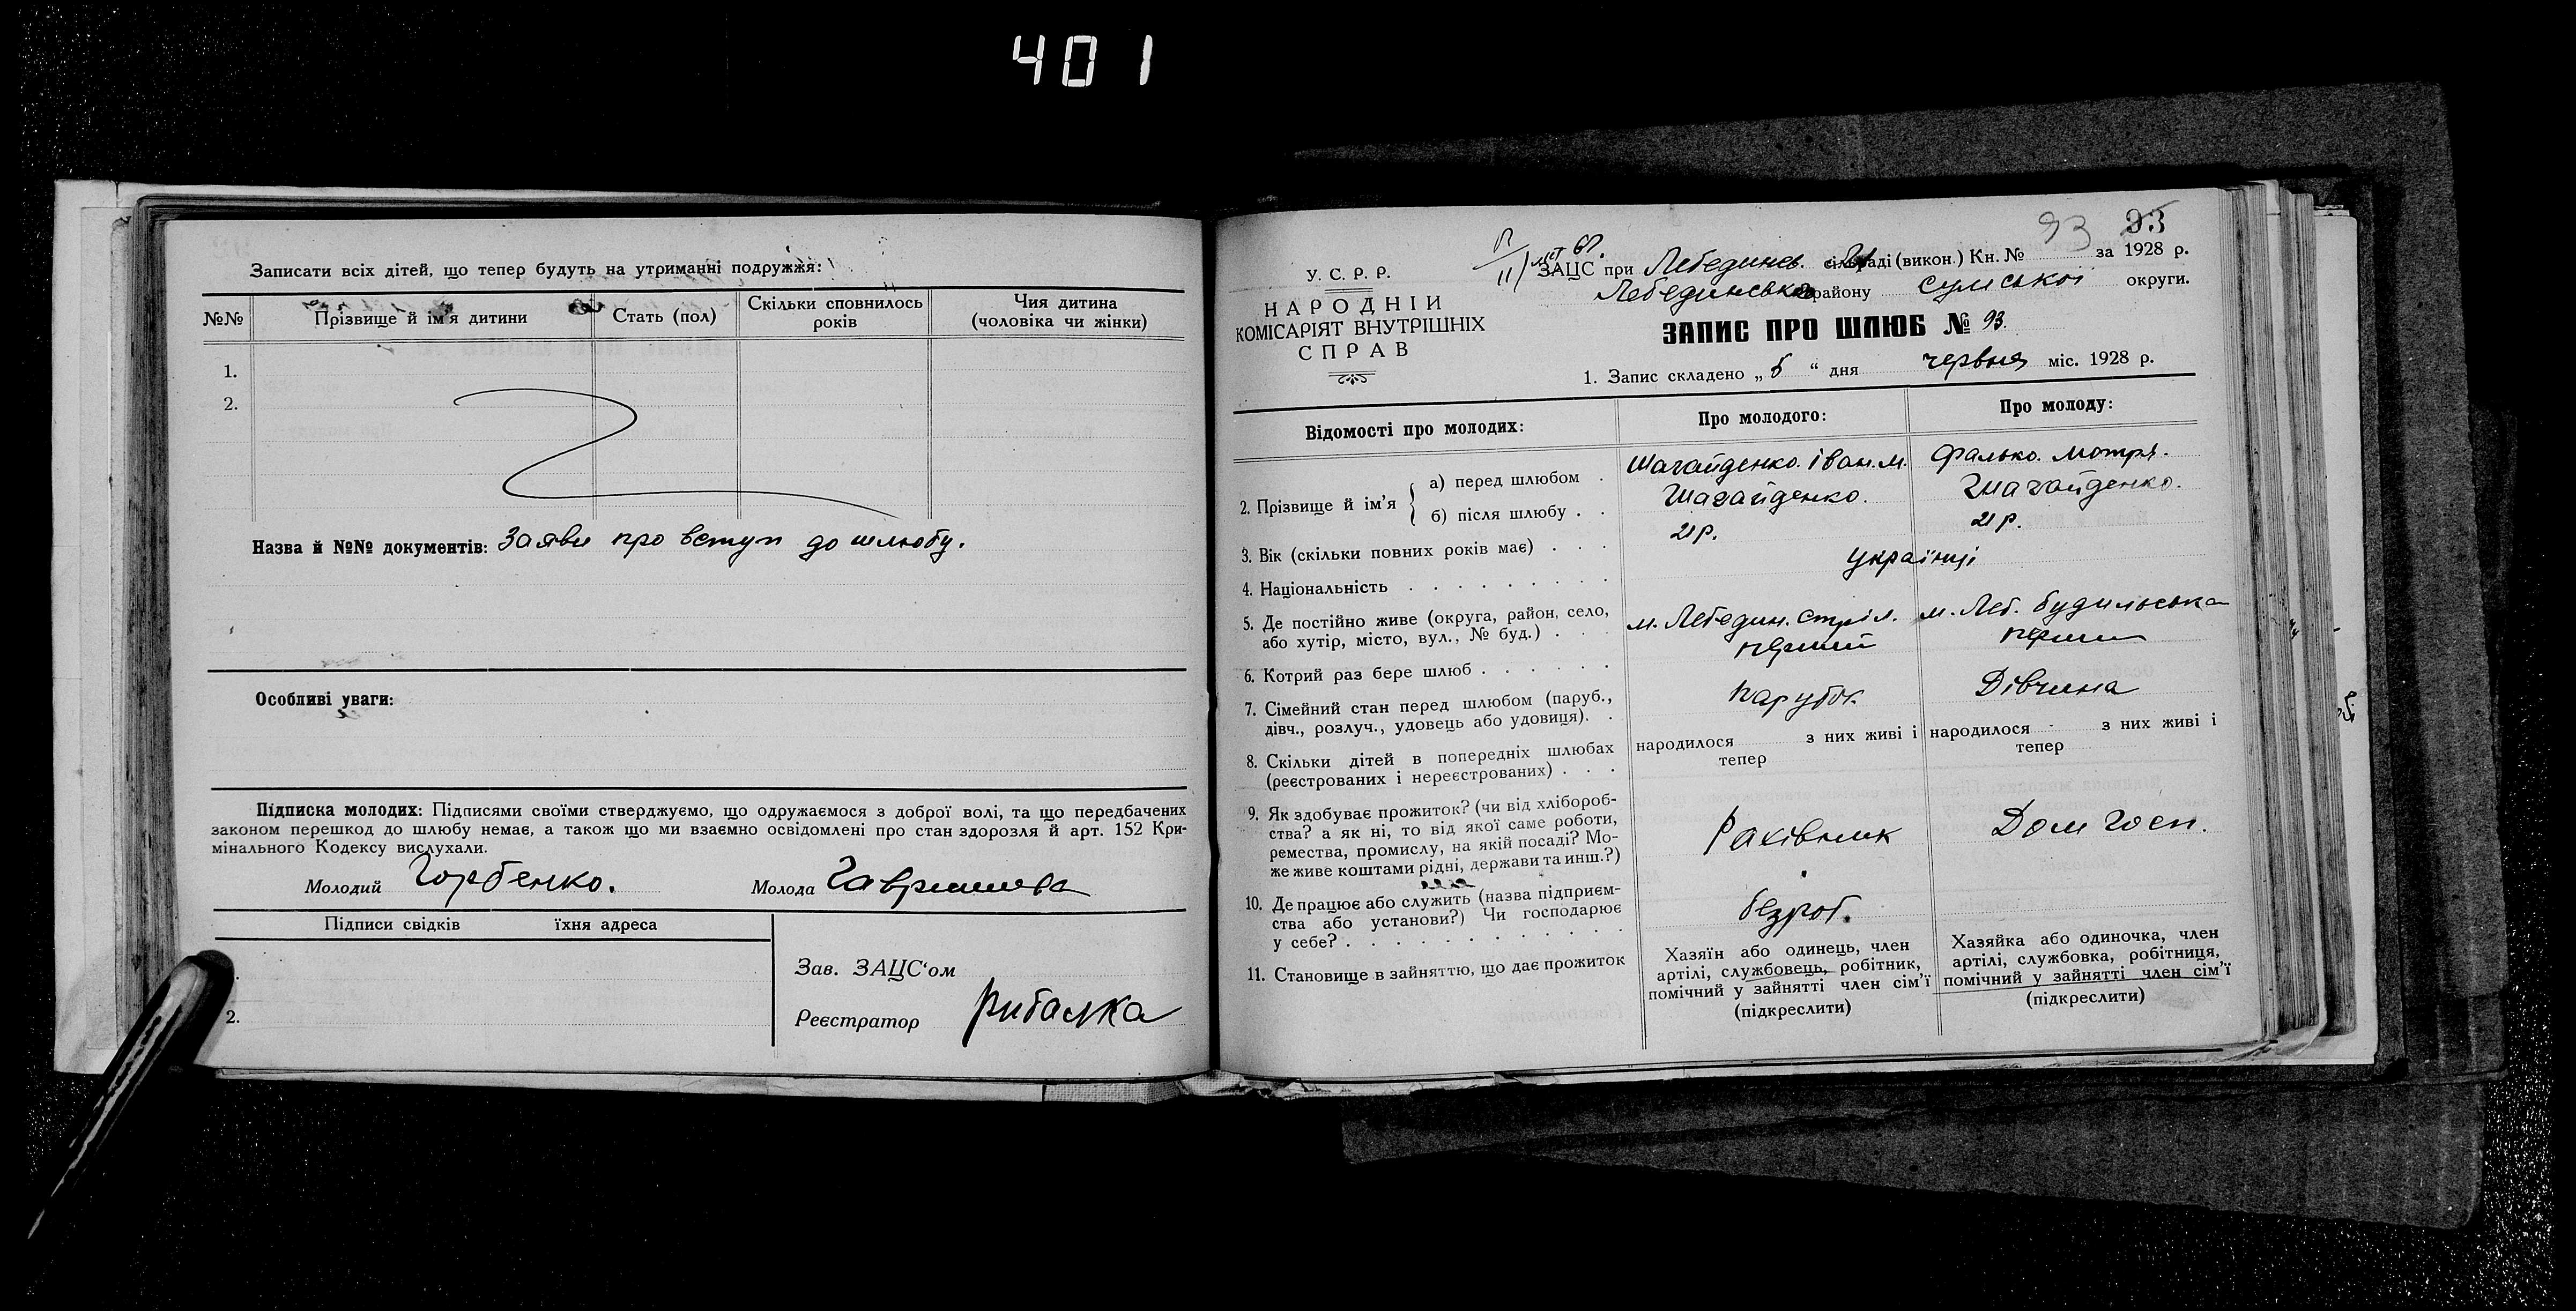 401
Записати всіх дітей, що тепер будуть на утриманні подружжя:
№№
Прізвище й ім'я дитини
Стать (пол)
Скільки сповнилось
років
Чия дитина
(чоловіка чи жінки)
1.
2.
Назва й №№ документів: Заяви про вступ до шлюбу.
Особливі уваги:
Підписка молодих: Підписями своїми стверджуємо, що одружаємося з доброї волі, та що передбачених
законом перешкод до шлюбу немає, а також що ми взаємно освідомлені про стан здорозля й арт. 152 Кри-
мінального Кодексу вислухали.
Молодий Горбенко. Молода Гавришева
Підписи свідків їхня адреса
2.
Зав. ЗАЦС'ом
Реєстратор Рибалка
93 93
У. С. Р. Р.
НАРОДНІЙ
КОМІСАРІЯТ ВНУТРІШНІХ
СПРАВ
ЗАЦС при Лебединск. сільраді (викон.) Кн. № за 1928 р.
Лебединського району Сумської округи.
ЗАПИС ПРО ШЛЮБ № 93.
1. Запис складено „5“ дня червня міс. 1928 р.
Відомості про молодих:
Про молодого:
Про молоду:
2. Прізвище й ім'я
а) перед шлюбом . Шагайденко. Іван. М. Фалько. Мотря.
б) після шлюбу . . Шагайденко. Шагайденко.
3. Вік (скільки повних років має) . . . 21 р. 21 р.
4. Національність . . . . . . . . . . Українці
5. Де постійно живе (округа, район, село,
або хутір, місто, вул., № буд.) . . . м. Лебедин. Стріл. м. Леб. Будильська
6. Котрий раз бере шлюб . . . . . . перший перший
7. Сімейний стан перед шлюбом (паруб.,
дівч., розлуч., удовець або удовиця). . Парубок. Дівчина
8. Скільки дітей в попередніх шлюбах
(реєстрованих і нереєстрованих) . . .
народилося з них живі і
тепер
народилося - з них живі і
тепер
9. Як здобуває прожиток? (чи від хлібороб-
ства? а як ні, то від якої саме роботи,
ремества, промислу, на якій посаді? Мо-
же живе коштами рідні, держави та инш.?)
Рахівник Дом госп.
10. Де працює або служить (назва підприєм-
ства або установи?) Чи господарює
у себе? . . . . . . . . . . . . .
безроб.
11. Становище в зайняттю, що дає прожиток
Хазяїн або одинець, член
артілі, службовець, робітник,
помічний у зайнятті член сім'ї
(підкреслити)
Хазяйка або одиночка, член
артілі, службовка, робітниця,
помічний у зайнятті член сім'ї
(підкреслити)